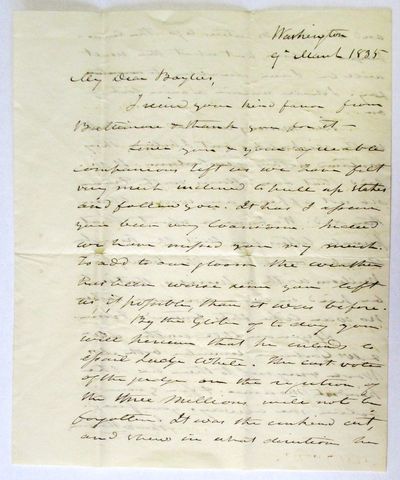 Washington
9th March 1835
My Dear Baylies,
I recd your kind favor from
Baltimore & thank you for it –
Since you & your agreeable
companions left us we have felt
very much inclined to pull up stakes
and follow you. It has I assure
you been very lonesome. Indeed
we have missed you very much.
To add to our gloom the weather
has been worse since you left
us, if possible, than it was before.
By the Globe of to day you
will perceive that he intends to
assail Judge White. The last vote
of the judge on the rejection of
the three Millions will not be
forgotten. It was the unkind cut,
and shew in what direction he